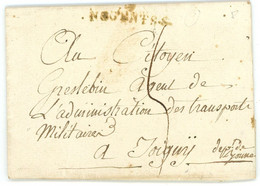 NOGENT S S
Au Citoyen
Greslebin Agent de
L'administration des transports
Militaires
a Joigny dept de
l'yonne
5